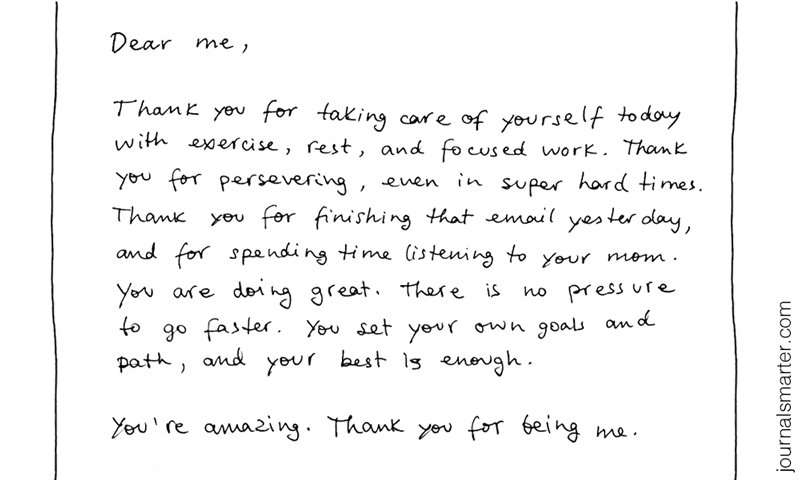 Dear me,
Thank you for taking care of yourself today
with exercise, rest, and focused work. Thank
you for persevering, even in super hard times.
Thank you for finishing that email yesterday,
and for spending time listening to your mom.
You are doing great. There is no pressure
to go faster. You set your own goals and
path, and your best is enough.
You're amazing. Thank you for being me.
journalsmarter.com